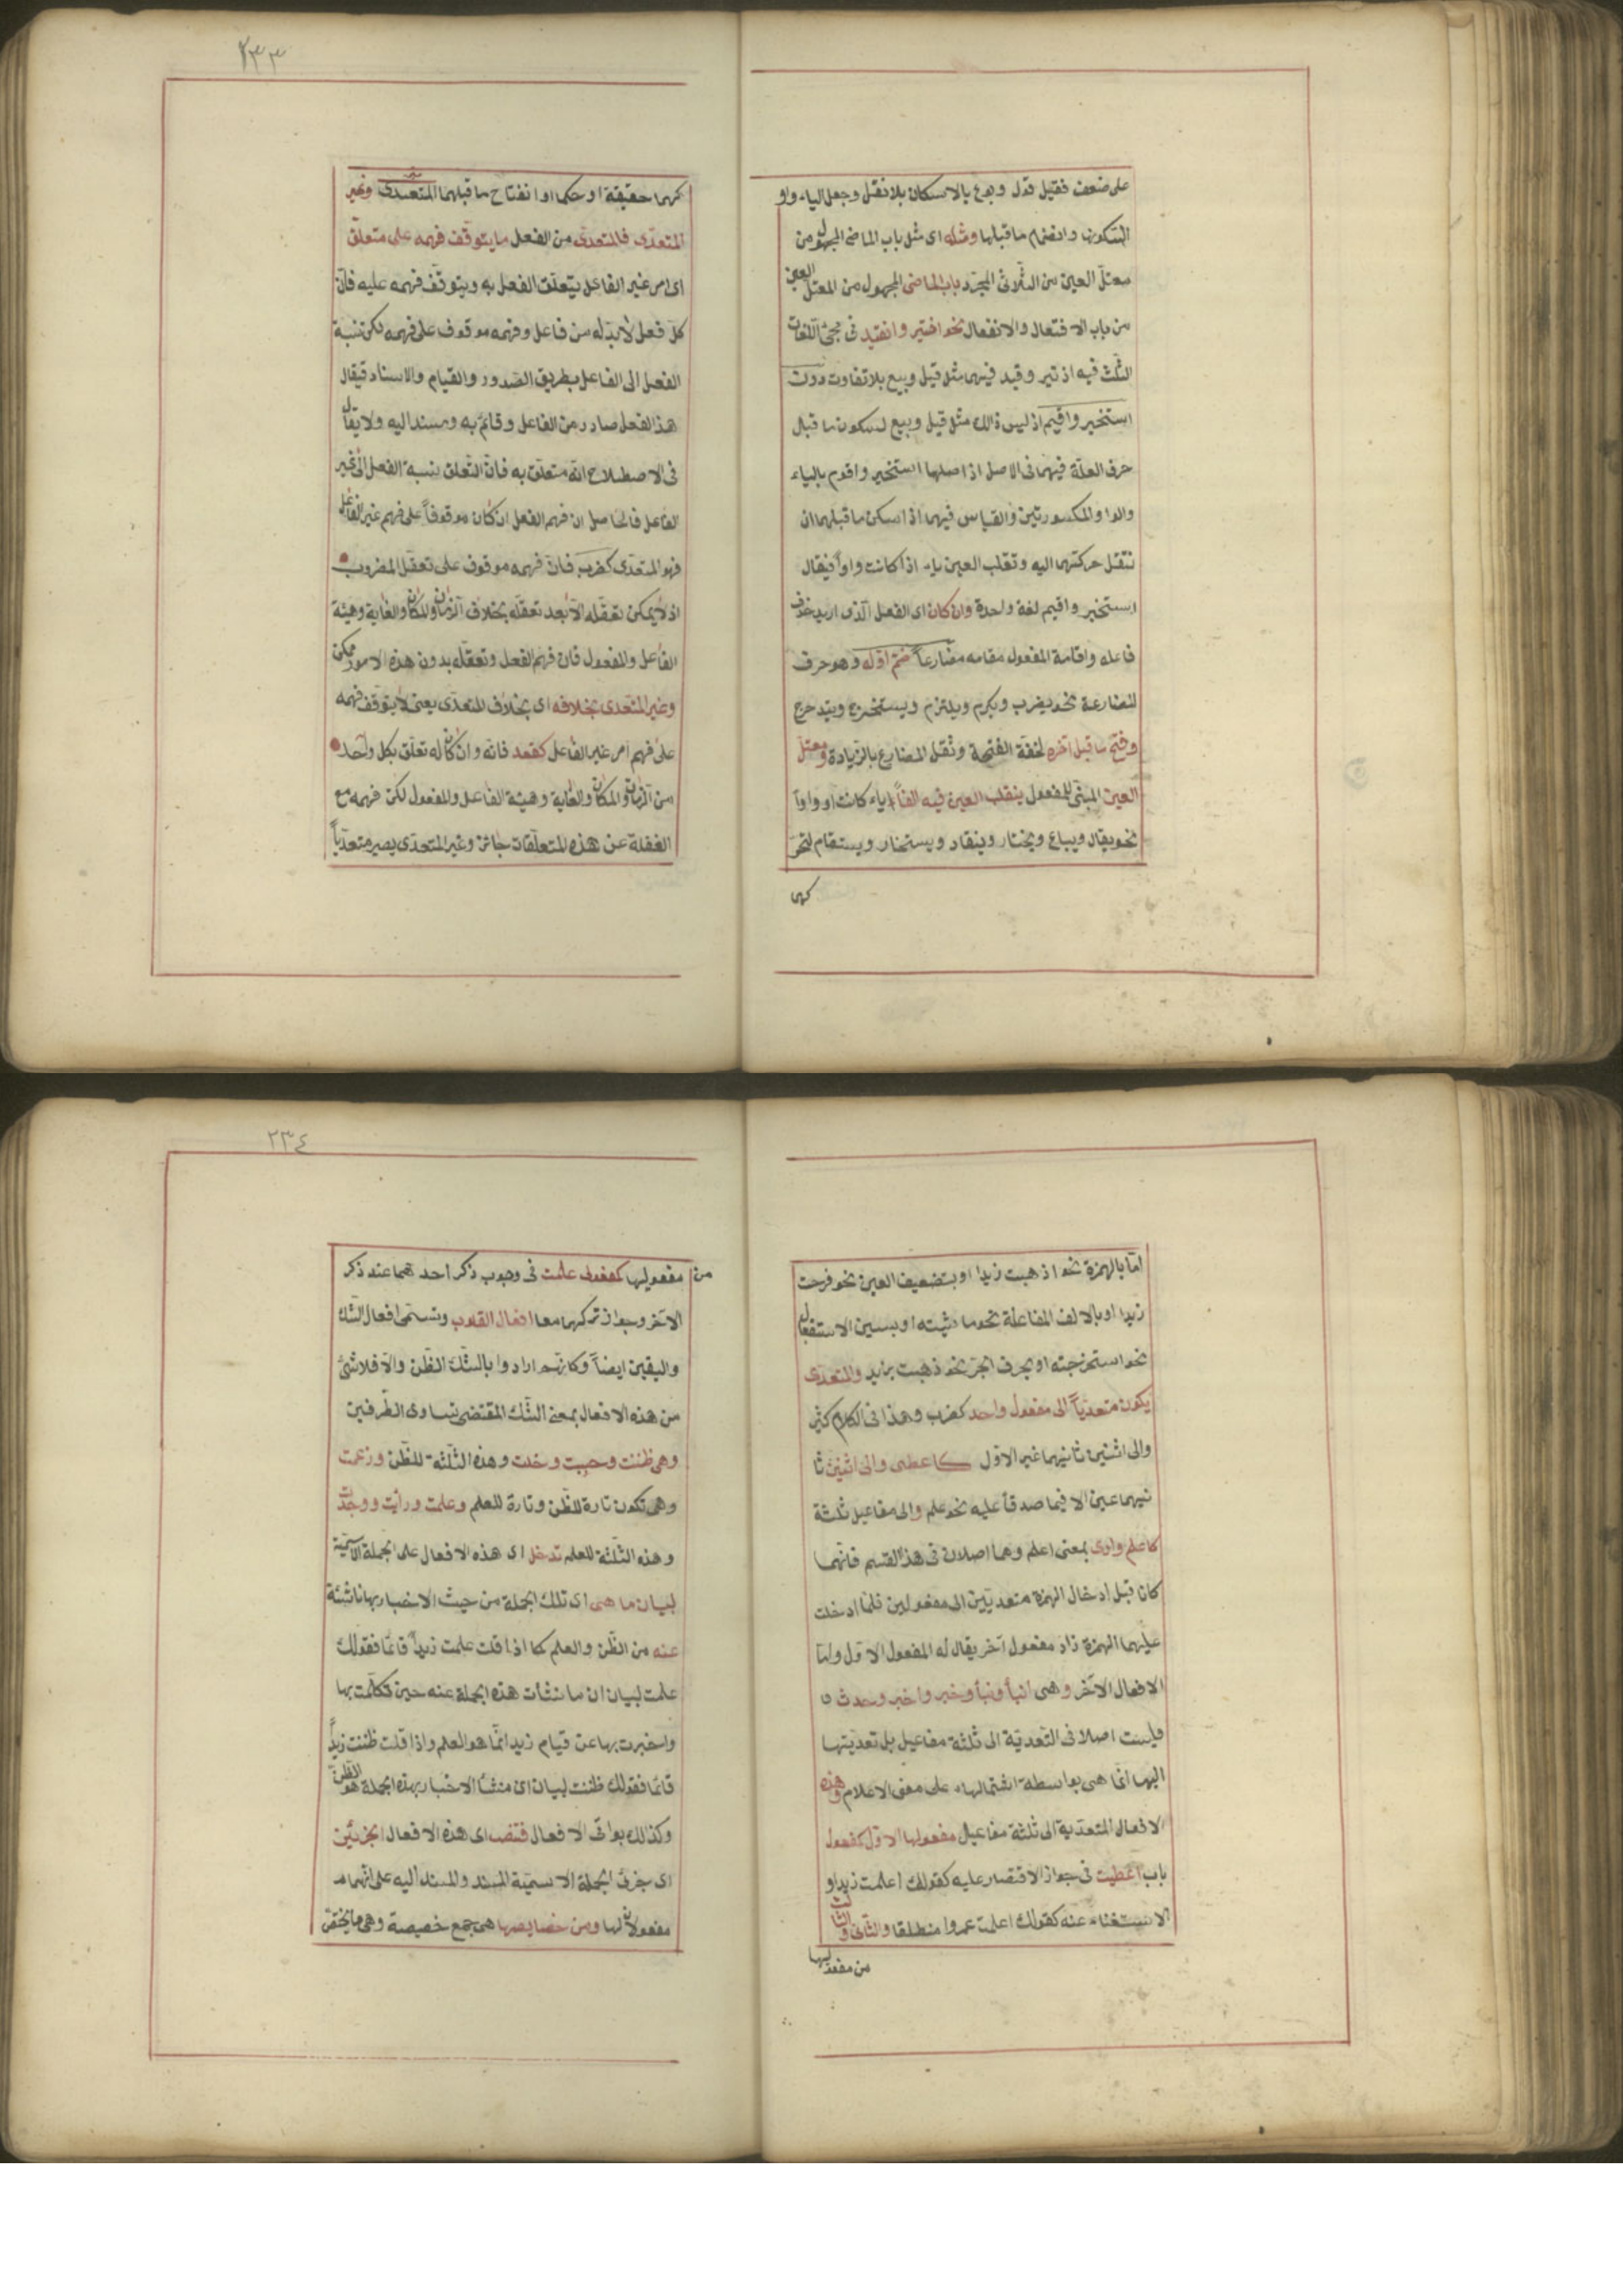 على ضعف فقيل قول وبوع بالاسكان بلا نقل وجعل الياء واو
لسكونها وانضمام ما قبلها ومثله اى مثل باب الماضى المجهول من
معتل العين من الثلاثى المجرد باب الماضى المجهول من المعتل العين
من باب الافتعال والانفعال نحو اختير وانقيد فى مجئ اللغات
الثلث فيه اذ تير وقيد فيهما مثل قيل وبيع بلا تفاوت دون
استخير واقيم اذ ليس ذالك مثل قيل وبيع لسكون ما قبل
حرف العلة فيهما فى الاصل اذ اصلها استخير واقوم بالياء
والواو المكسورتين والقياس فيهما اذا سكن ما قبلهما ان
تنقل حركتهما اليه وتقلب العين ياء اذا كانت واواً فيقال
استخير واقيم لغة واحدة وان كان اى الفعل الذى اريد حذف
فاعله واقامة المفعول مقامه مضارعاً ضم اوله وهو حرف
المضارعة نحو يضرب ويكرم ويلتزم ويستخرج ويتدحرج
وفتح ما قبل آخره لخفة الفتحة وثقل المضارع بالزيادة ومعتل
العين المبنى للمفعول ينقلب العين فيه الفاً ياء كانت او واواً
نحو يقال ويباع ويختار وينقاد ويستخار ويستقام لتحر
كهما
٢٣٣
كهما حقيقة او حكما وانفتاح ما قبلهما المتعدى وغير
المتعدى فالمتعدى من الفعل ما يتوقف فهمه على متعلق
اى امر غير الفاعل يتعلق الفعل به ويتوقف فهمه عليه فان
كل فعل لابد له من فاعل وفهمه موقوف على فهمه لكن نسبة
الفعل الى الفاعل بطريق الصدور والقيام والاسناد فيقال
هذا الفعل صادر من الفاعل وقائم به ومسند اليه ولا يقال
فى الاصطلاح انه متعلق به فان التعلق نسبة الفعل الى غير
الفاعل فالحاصل ان فهم الفعل ان كان موقوفاً على فهم غير الفاعل
فهو المتعدى كضرب فان فهمه موقوف على تعقل المضروب
اذ لا يمكن تعقله الا بعد تعقله بخلاف الزمان والمكان والغاية وهيئة
الفاعل والمفعول فان فهم الفعل وتعقله بدون هذه الامور ممكن
وغير المتعدى بخلافه اى بخلاف المتعدى يعنى لا يتوقف فهمه
على فهم امر غير الفاعل كقعد فانه وان كان له تعلق بكل واحد
من الزمان والمكان والغاية وهيئة الفاعل والمفعول لكن فهمه مع
الغفلة عن هذه المتعلقات جائز وغير المتعدى يصير متعدياً
اما بالهمزة نحو اذهبت زيدا او بتضعيف العين نحو فرحت
زيدا او بالالف المفاعلة نحو ماشيته او بسين الاستفعال
نحو استخرجته او بحرف الجر نحو ذهبت بزيد والمتعدى
يكون متعدياً الى مفعول واحد كضرب وهذا فى الكلام كثير
والى اثنين ثانيهما غير الاول كاعطى والى اثنين ثا
نيهما عين الا فيما صدقا عليه نحو علم والى مفاعيل ثلثة
كاعلم وارى بمعنى اعلم وهما اصلان فى هذا القسم فانهما
كانا قبل ادخال الهمزة متعديين الى مفعولين فلما ادخلت
عليهما الهمزة زاد مفعول آخر يقال له المفعول الاول واما
الافعال الآخر وهى انبأ ونبأ وخبر واخبر وحدث
فليست اصلا فى التعدية الى ثلثة مفاعيل بل تعديتها
اليها انما هى بواسطة اشتمالها على معنى الاعلام وهذه
الافعال المتعدية الى ثلثة مفاعيل مفعولها الاول كمفعول
باب اعطيت فى جواز الاقتصار عليه كقولك اعلمت زيدا و
الاستغناء عنه كقولك اعلمت عمروا منطلقا والثانى والثالث
من مفعوليها
٢٣٤
من مفعوليها كمفعولى علمت فى وجوب ذكر احدهما عند ذكر
الآخر وجواز تركهما معا افعال القلوب وتسمى افعال الشك
واليقين ايضاً وكانهم ارادوا بالشك الظن والا فلا شئ
من هذه الافعال بمعنى الشك المقتضى تساوى الطرفين
وهى ظننت وحسبت وخلت وهذه الثلثة للظن وزعمت
وهى تكون تارة للظن وتارة للعلم وعلمت ورأيت ووجدت
وهذه الثلثة للعلم تدخل اى هذه الافعال على الجملة الاسمية
لبيان ما هى اى تلك الجملة من حيث الاخبار بها ناشئة
عنه من الظن والعلم كما اذا قلت علمت زيداً قائما فقولك
علمت لبيان ان ما نشأت هذه الجملة عنه حين تكلمت بها
واخبرت بها عن قيام زيد انما هو العلم واذا قلت ظننت زيداً
قائما فقولك ظننت لبيان ان منشأ الاخبار بهذه الجملة هو الظن
وكذالك بواقى الافعال فتنصب اى هذه الافعال الجزئين
اى جزئى الجملة الاسمية المسند والمسند اليه على انهما
مفعولان لها ومن خصايصها هى جمع خصيصة وهى ما يختص